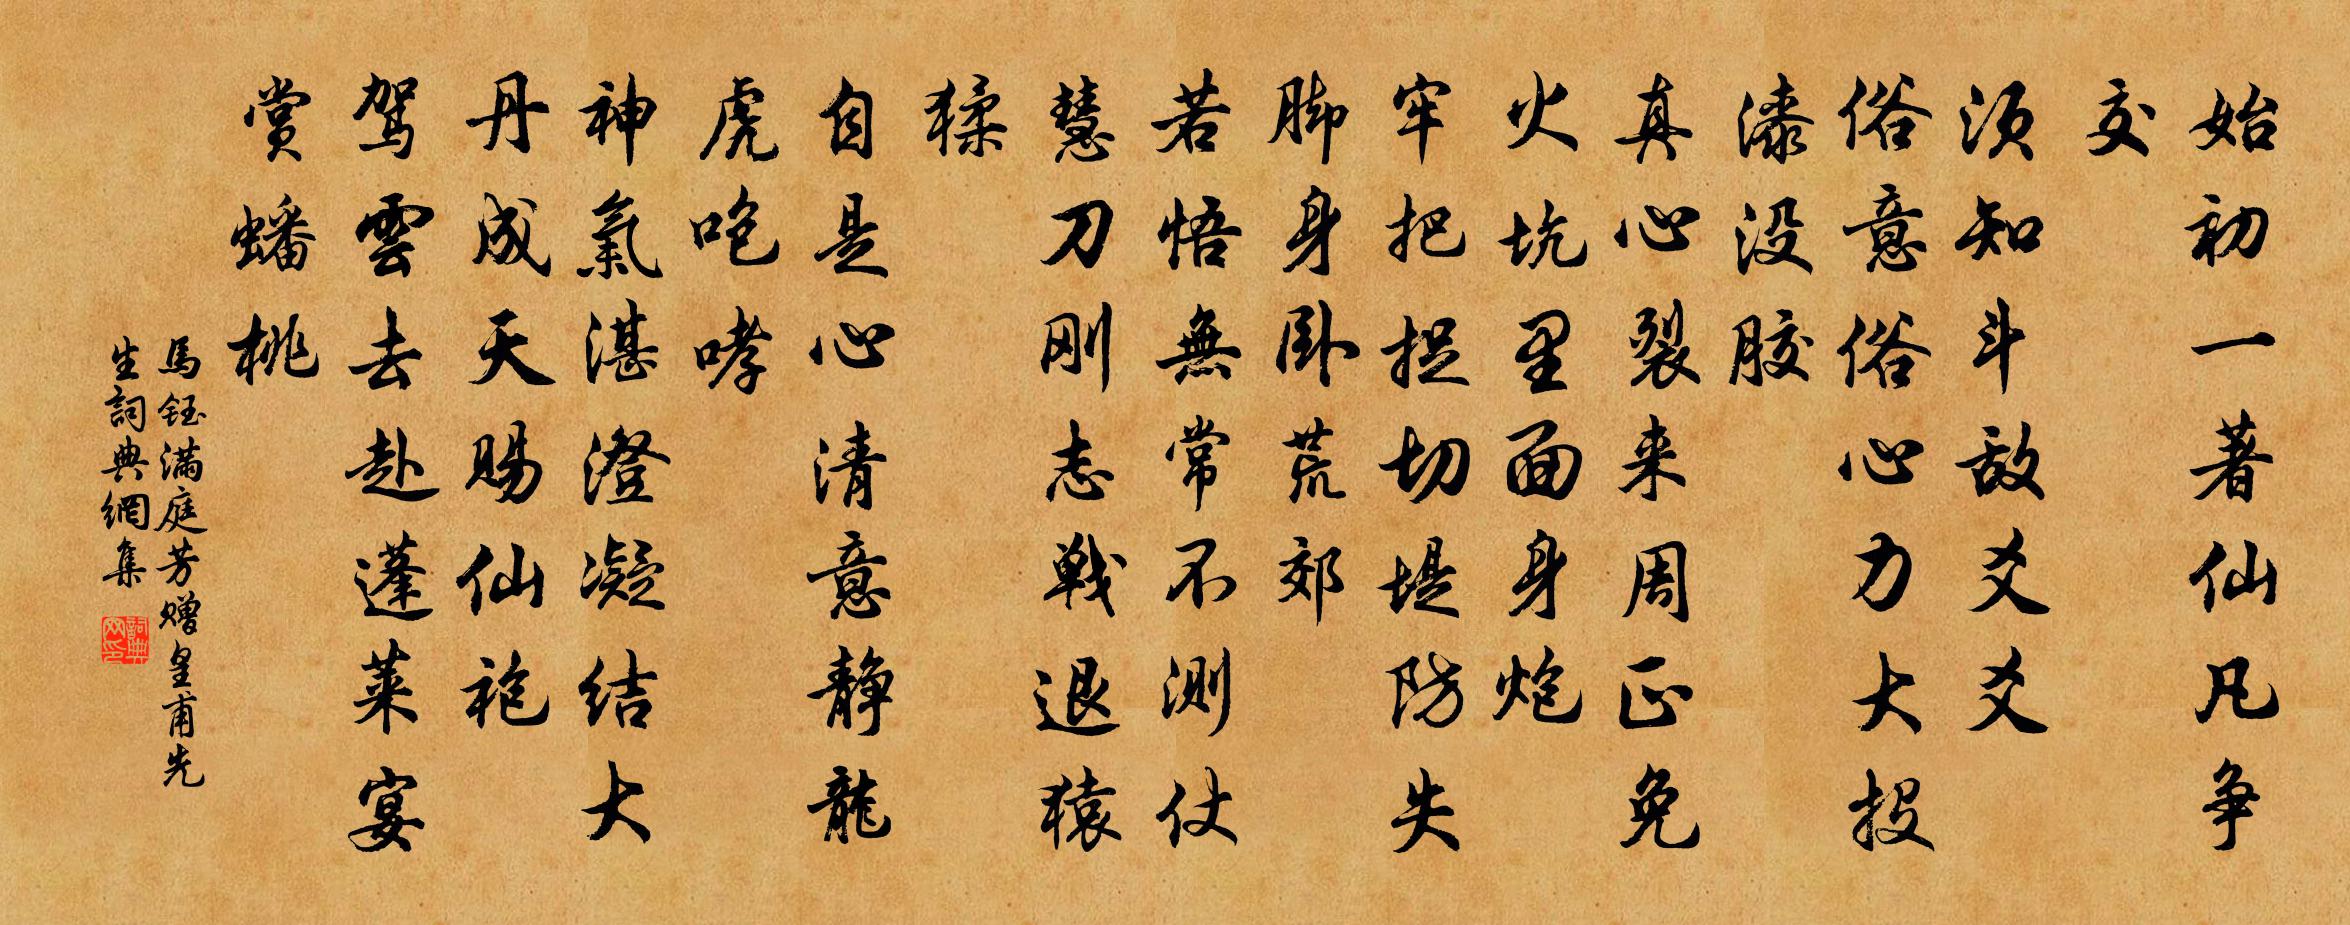 始初一著仙凡争
交
须知斗敌爻爻
俗意俗心力大投
漆没胶
真心裂来周正免
火坑里面身炮
牢把捉切堤防失
脚身卧荒郊
若悟無常不测仗
慧刀刚志戦退猿
猱
自是心清意静龍
虎咆哮
神氣湛澄凝结大
丹成天赐仙袍
驾雲去赴蓬莱宴
赏蟠桃
馬钰满庭芳赠皇甫先
生詞典網集
詞典
网印